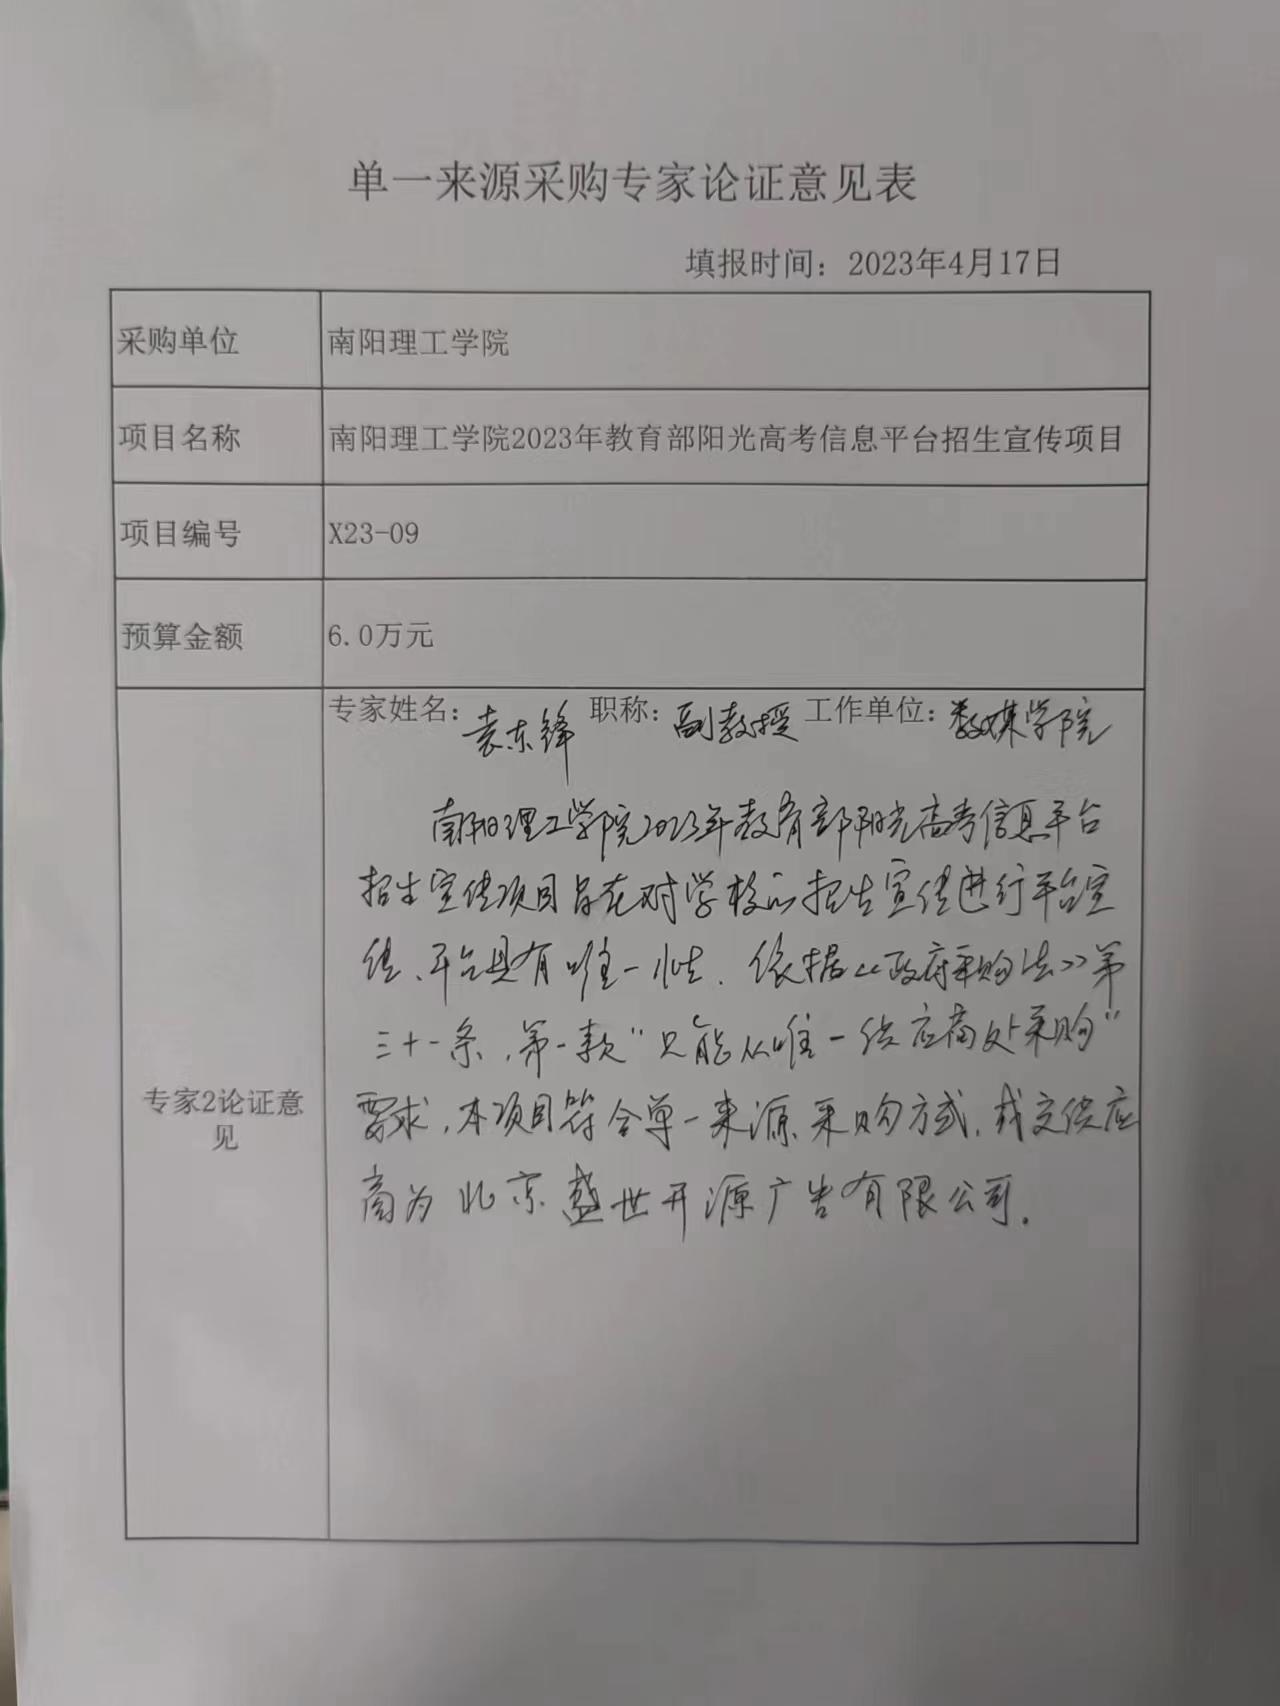 单一来源采购专家论证意见表
填报时间：2023年4月17日
采购单位 南阳理工学院
项目名称 南阳理工学院2023年教育部阳光高考信息平台招生宣传项目
项目编号 X23-09
预算金额 6.0万元
专家姓名：袁东锋 职称：副教授 工作单位：数媒学院
南阳理工学院2023年教育部阳光高考信息平台
招生宣传项目旨在对学校的招生宣传进行平台宣
传、平台具有唯一性. 依据《政府采购法》第
三十一条，第一款"只能从唯一供应商处采购"
要求，本项目符合单一来源采购方式，成交供应
商为北京盛世开源广告有限公司.
专家2论证意
见